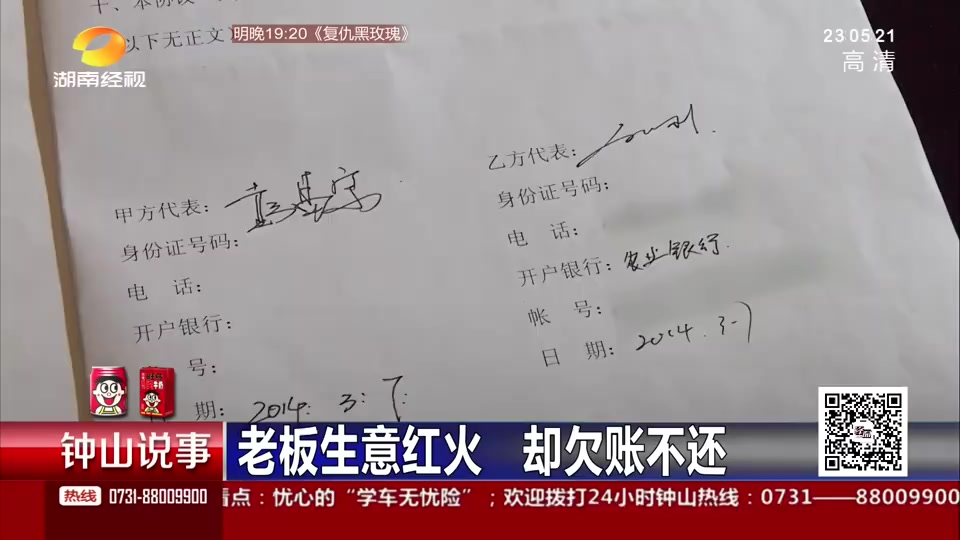 十、本协议
以下无正文
明晚19:20《复仇黑玫瑰》
23 05 21
高清
湖南经视
甲方代表：
身份证号码：
电 话：
开户银行：
号：
期： 2014. 3. 7.
乙方代表：
身份证号码：
电 话：
开户银行：农业银行.
帐 号：
日 期： 2014. 3-7
钟山说事
老板生意红火 却欠账不还
热线 0731-88009900
看点：忧心的“学车无忧险”；欢迎拨打24小时钟山热线：0731——88009900